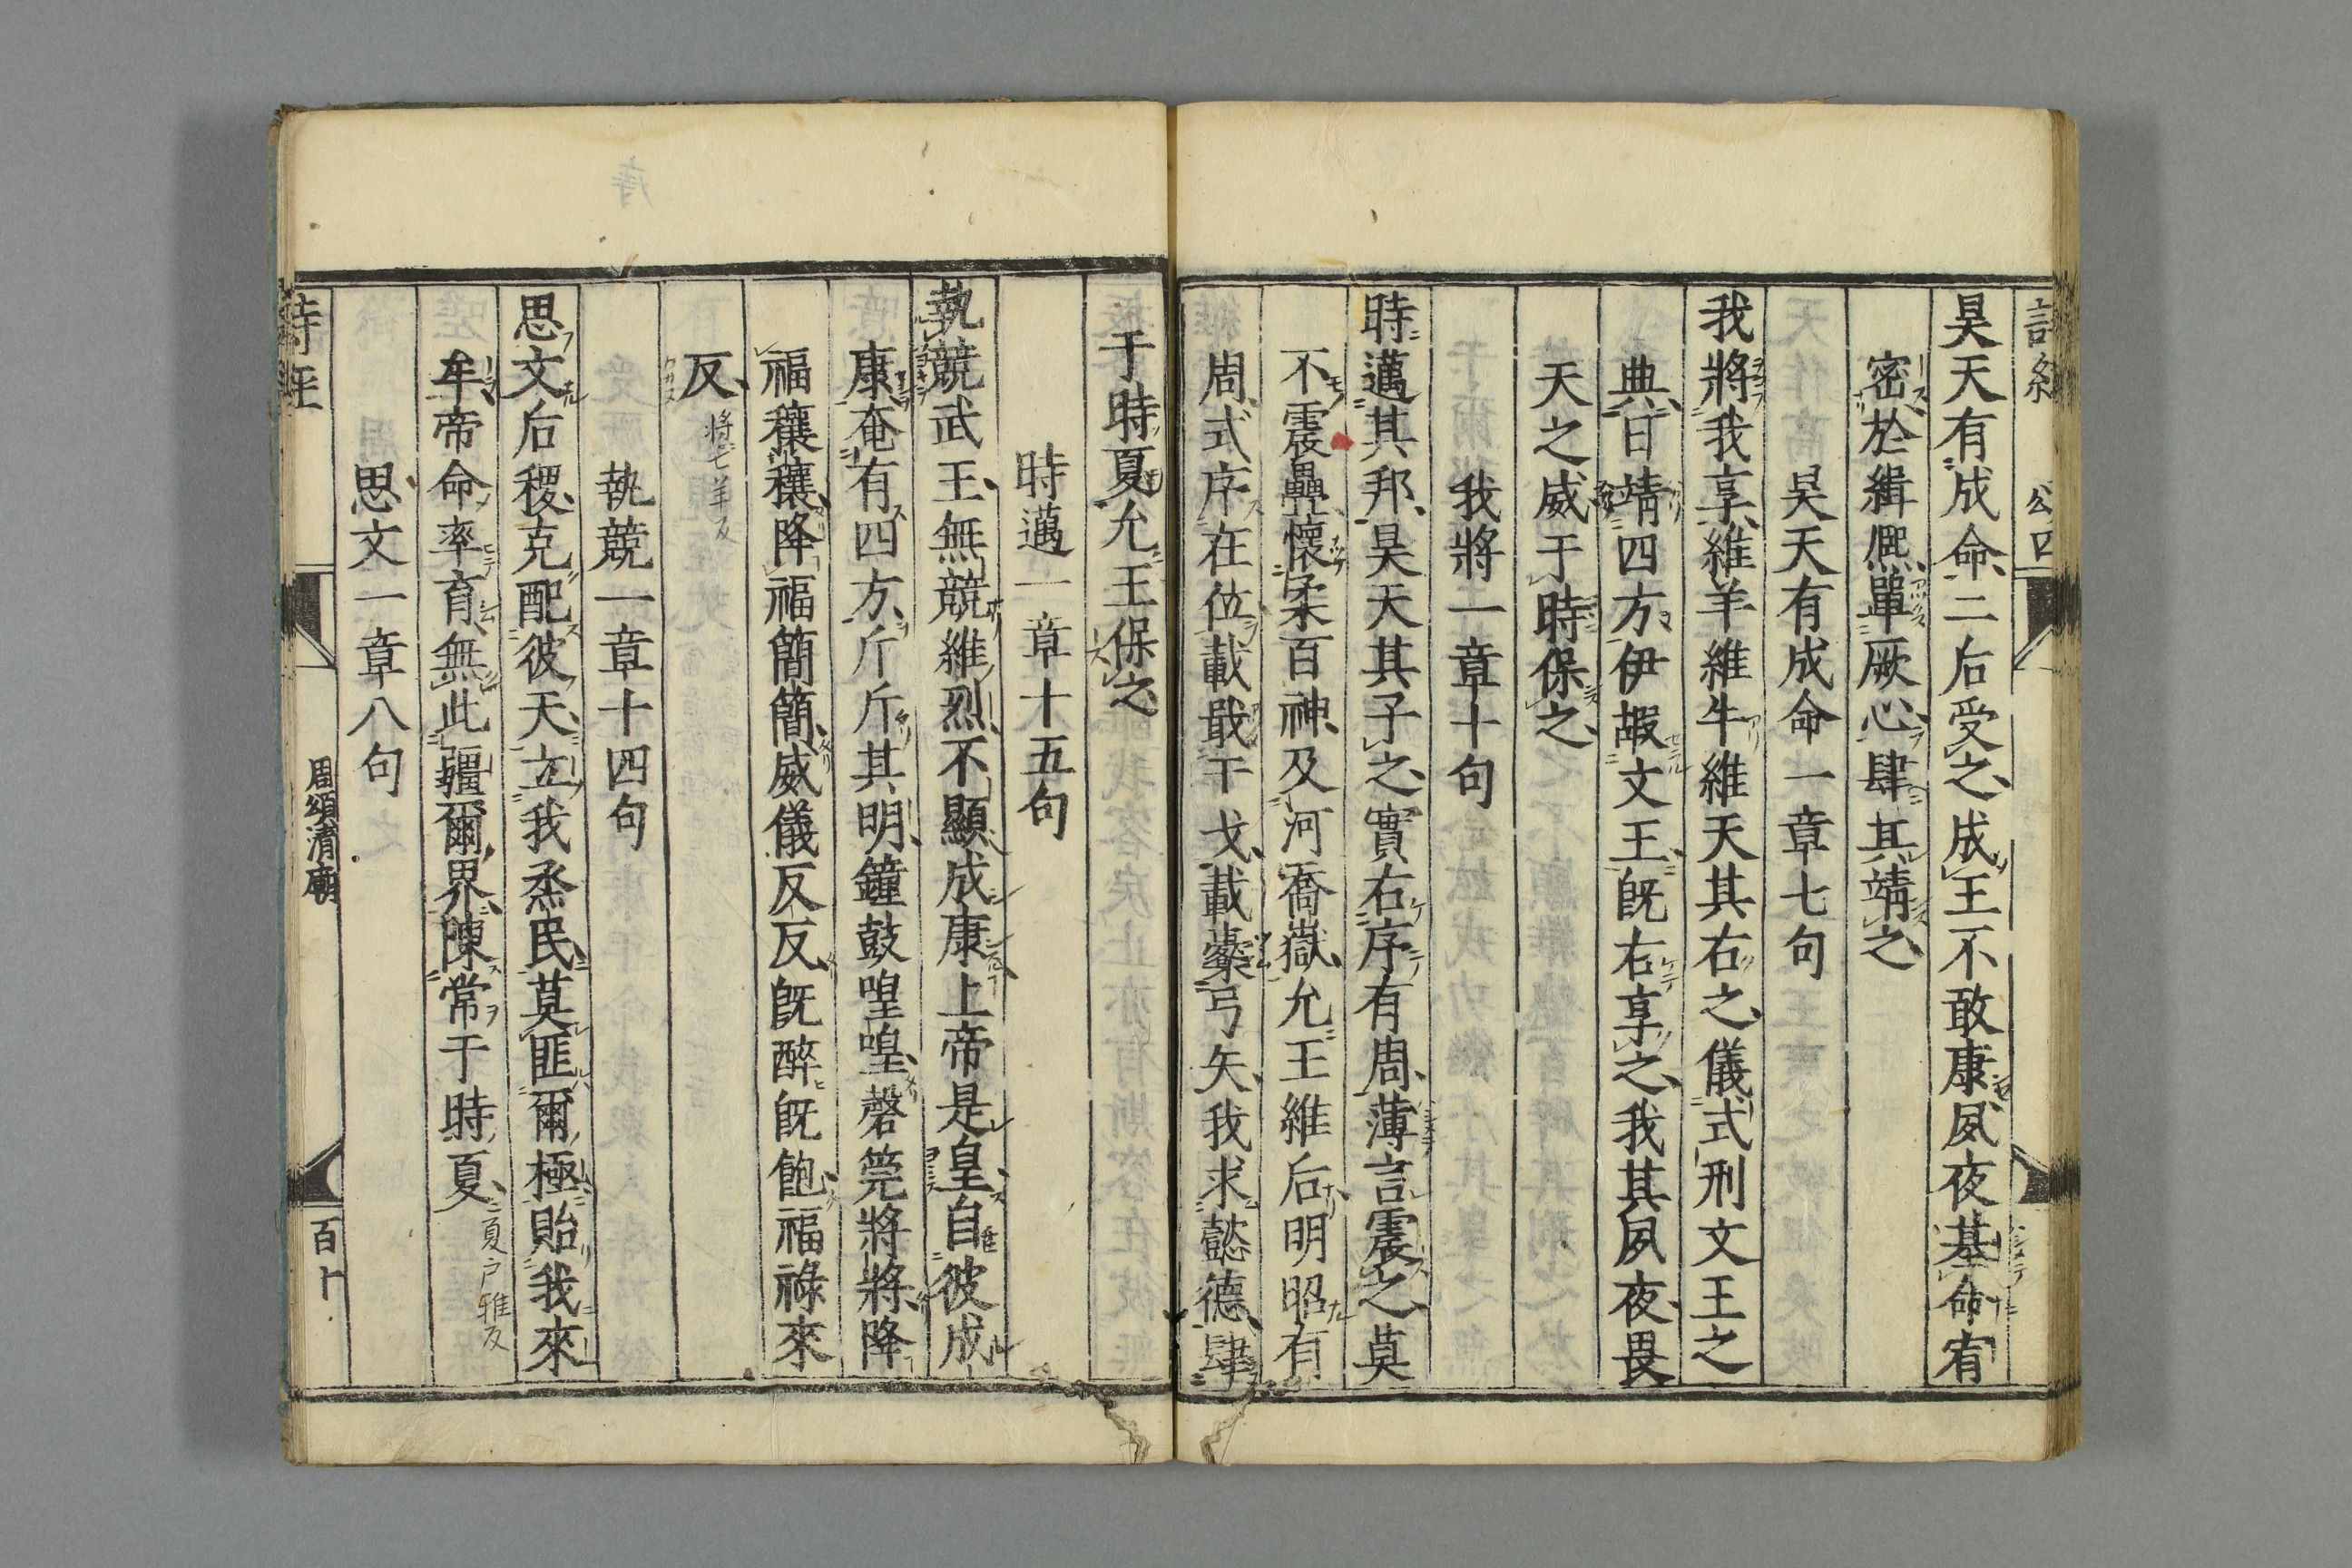 昊天有成命二后受之成王不敢康夙夜基命宥
密於緝熈單厥心肆其靖之
昊天有成命一章七句
我將我享維羊維牛維天其右之儀式刑文王之
典日靖四方伊嘏文王旣右享之我其夙夜畏
天之威于時保之
我將一章十句
時邁其邦昊天其子之實右序有周薄言震之莫
不震疊懷柔百神及河喬嶽允王維后明昭有
周式序在位載戢干戈載櫜弓矢我求懿德肆
于時夏允王保之
時邁一章十五句
執競武王無競維烈不顯成康上帝是皇自彼成
康奄有四方斤斤其明鐘鼓喤喤磬筦將將降
福穰穰降福簡簡威儀反反旣醉旣飽福祿來
反 將七羊反
執競一章十四句
思文后稷克配彼天立我烝民莫匪爾極貽我來
牟帝命率育無此疆爾界陳常于時夏 夏戸雅反
思文一章八句
周頌清廟